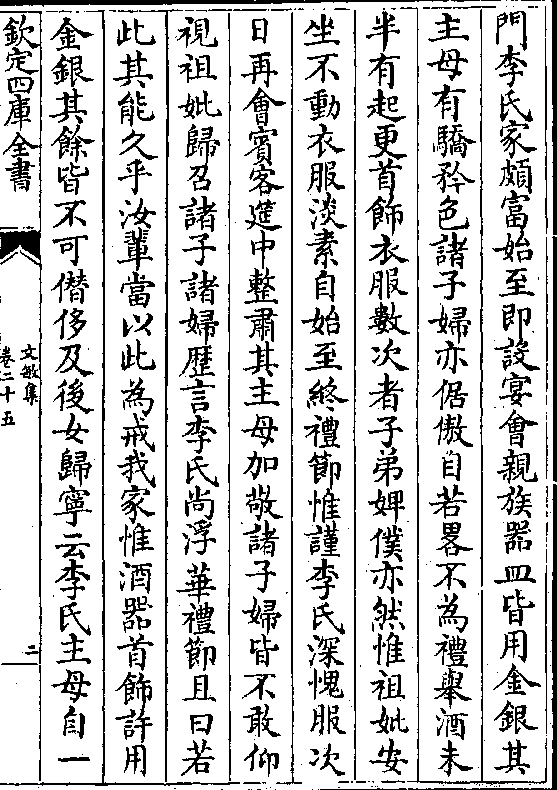 門李氏家頗富始至即設宴會親族器皿皆用金銀其
主母有驕矜色諸子婦亦倨傲自若畧不為禮舉酒未
半有起更首飾衣服數次者子弟婢僕亦然惟祖妣安
坐不動衣服淡素自始至終禮節惟謹李氏深愧服次
日再會賓客筵中整肅其主母加敬諸子婦皆不敢仰
視祖妣歸召諸子諸婦歷言李氏尚浮華禮節且曰若
此其能久乎汝輩當以此為戒我家惟酒器首飾許用
金銀其餘皆不可僭侈及後女歸寧云李氏主母自一
欽定四庫全書
文敏集
卷二十五
二